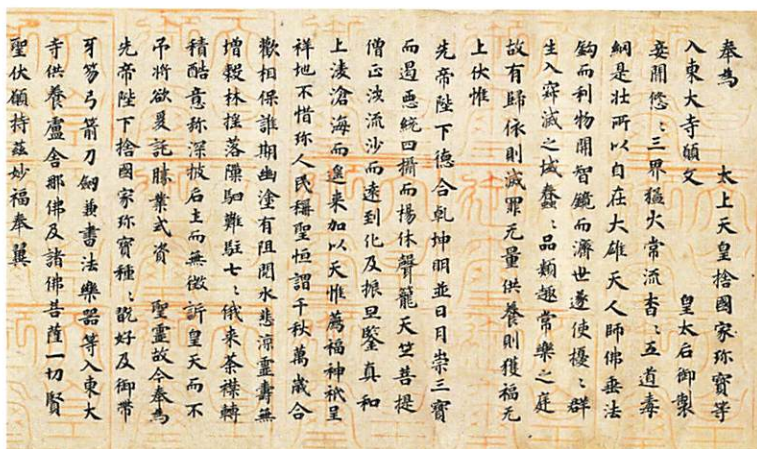 奉為　太上天皇捨國家珎寶等
入東大寺願文　皇太后御製
妾聞悠〻三界猛火常流杳〻五道毒
網是壯所以自在大雄天人師佛垂法
鈎而利物開智鏡而濟世遂使擾〻群
生入寂滅之域蠢〻品類趣常樂之庭
故有歸依則滅罪无量供養則獲福无
上伏惟
先帝陛下德合乾坤明並日月崇三寶
而遏惡統四攝而揚休聲籠天竺菩提
僧正涉流沙而遠到化及振旦鑒真和
上凌滄海而遙來加以天惟薦福神祇呈
祥地不惜珎人民稱聖恒謂千秋萬歲合
歡相保誰期幽塗有阻閱水悲涼靈壽無
增穀林搖落隟駟難駐七〻俄來茶襟轉
積酷意弥深披后土而無徵訴皇天而不
吊將欲爰託勝業式資　聖靈故今奉為
先帝陛下捨國家珎寶種〻翫好及御帶
牙笏弓箭刀劔兼書法樂器等入東大
寺供養盧舍那佛及諸佛菩薩一切賢
聖伏願持茲妙福奉翼